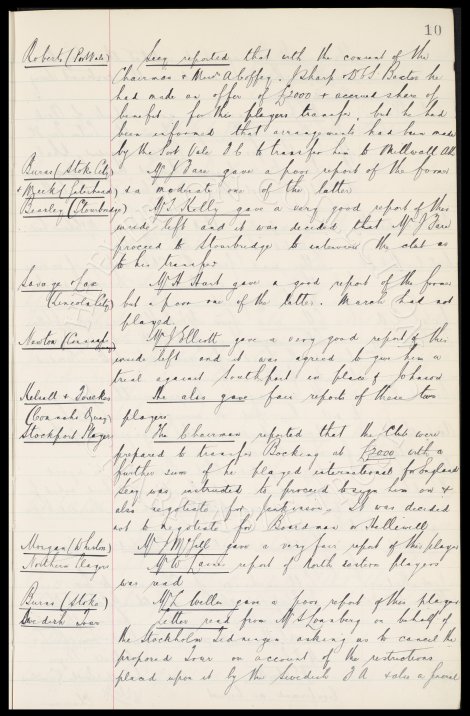 10
Roberts (Port Vale) Secy reported that with the consent of the
Chairman & Messrs A Coffey, J Sharp & D S Baxter he
had made an offer of £2000 + accrued share of
benefit for this players transfer, but he had
been informed that arrangements had been made
by the Port Vale F.C. to transfer him to Millwall Ath
Burns (Stoke City) Mr J Fare gave a poor report of the former
+ Meek (Gateshead) & a moderate one of the latter
Brearley (Stourbridge) Mr L Kelly gave a very good report of this
inside left and it was decided that Mr J Fare
proceed to Stourbridge to interview the club as
to his transfer
Savage Mr H Hart gave a good report of the former
(Lincoln City) but a poor one of the latter. Marsh had not
played
Newton Mr J Elliott gave a very good report of this
inside left and it was agreed to give him a
trial against Southport in place of Johnson
He also gave fair reports of those two
(Connahs Quay) players
Stockport Players The Chairman reported that the Club were
prepared to transfer Bocking at £2000 with a
further sum if he played international for England
Secy was instructed to proceed to sign him on &
also negotiate for Jenkinson. It was decided
not to negotiate for Boardman or Halliwell
Morgan (Whiston) gave a very fair report of this player
Northern Players Mr W report of North Eastern players
was read
Burns (Stoke) Mr L Weller gave a poor report of this player
Swedish Tour Letter read from Mr S Lonnberg on behalf of
the Stockholm Tidningen asking us to cancel the
proposed Tour on account of the restrictions
placed upon it by the Swedish F.A. & also a general